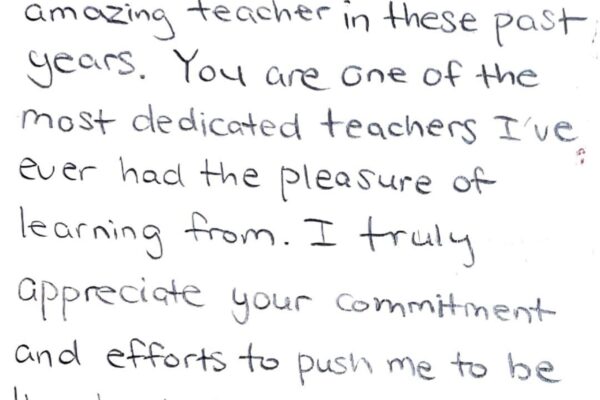 amazing teacher in these past
years. You are one of the
most dedicated teachers I've
ever had the pleasure of
learning from. I truly
appreciate your commitment
and efforts to push me to be